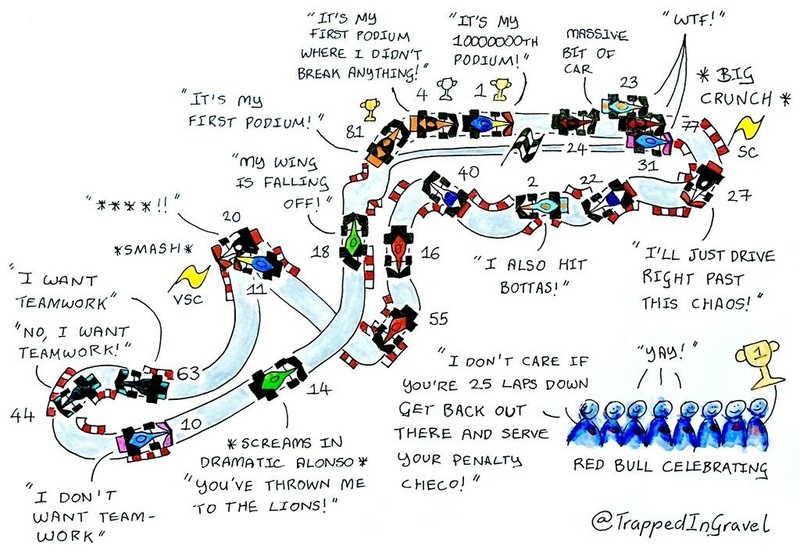 "IT'S MY
FIRST PODIUM
WHERE I DIDN'T
BREAK ANYTHING!"
"IT'S MY
10000000TH
PODIUM!"
MASSIVE
BIT OF
CAR
"WTF!"
*BIG
CRUNCH*
"IT'S MY
FIRST PODIUM!"
4
1
23
81
24
31
77
SC
"MY WING
IS FALLING
OFF!"
40
2
22
27
"****!!"
20
*SMASH*
VSC
11
18
16
"I ALSO HIT
BOTTAS!"
"I'LL JUST DRIVE
RIGHT PAST
THIS CHAOS!"
"I WANT
TEAMWORK"
"NO, I WANT
TEAMWORK!"
63
55
44
10
14
"I DON'T
WANT TEAM-
WORK"
*SCREAMS IN
DRAMATIC ALONSO*
"YOU'VE THROWN ME
TO THE LIONS!"
"I DON'T CARE IF
YOU'RE 25 LAPS DOWN
GET BACK OUT
THERE AND SERVE
YOUR PENALTY
CHECO!"
"YAY!"
1
RED BULL CELEBRATING
@TrappedInGravel